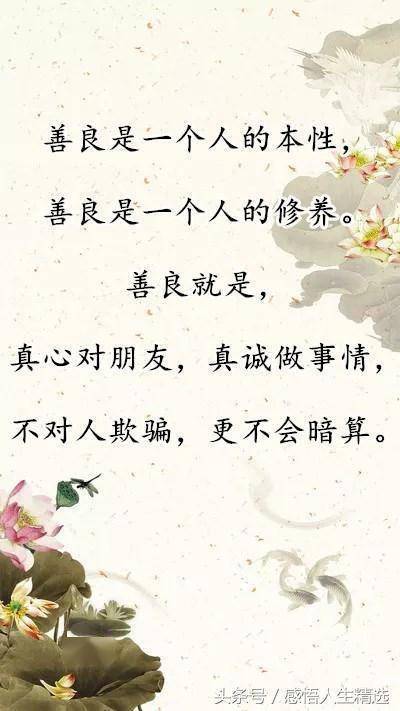 善良是一个人的本性，
善良是一个人的修养。
善良就是，
真心对朋友，真诚做事情，
不对人欺骗，更不会暗算。
头条号／感悟人生精选